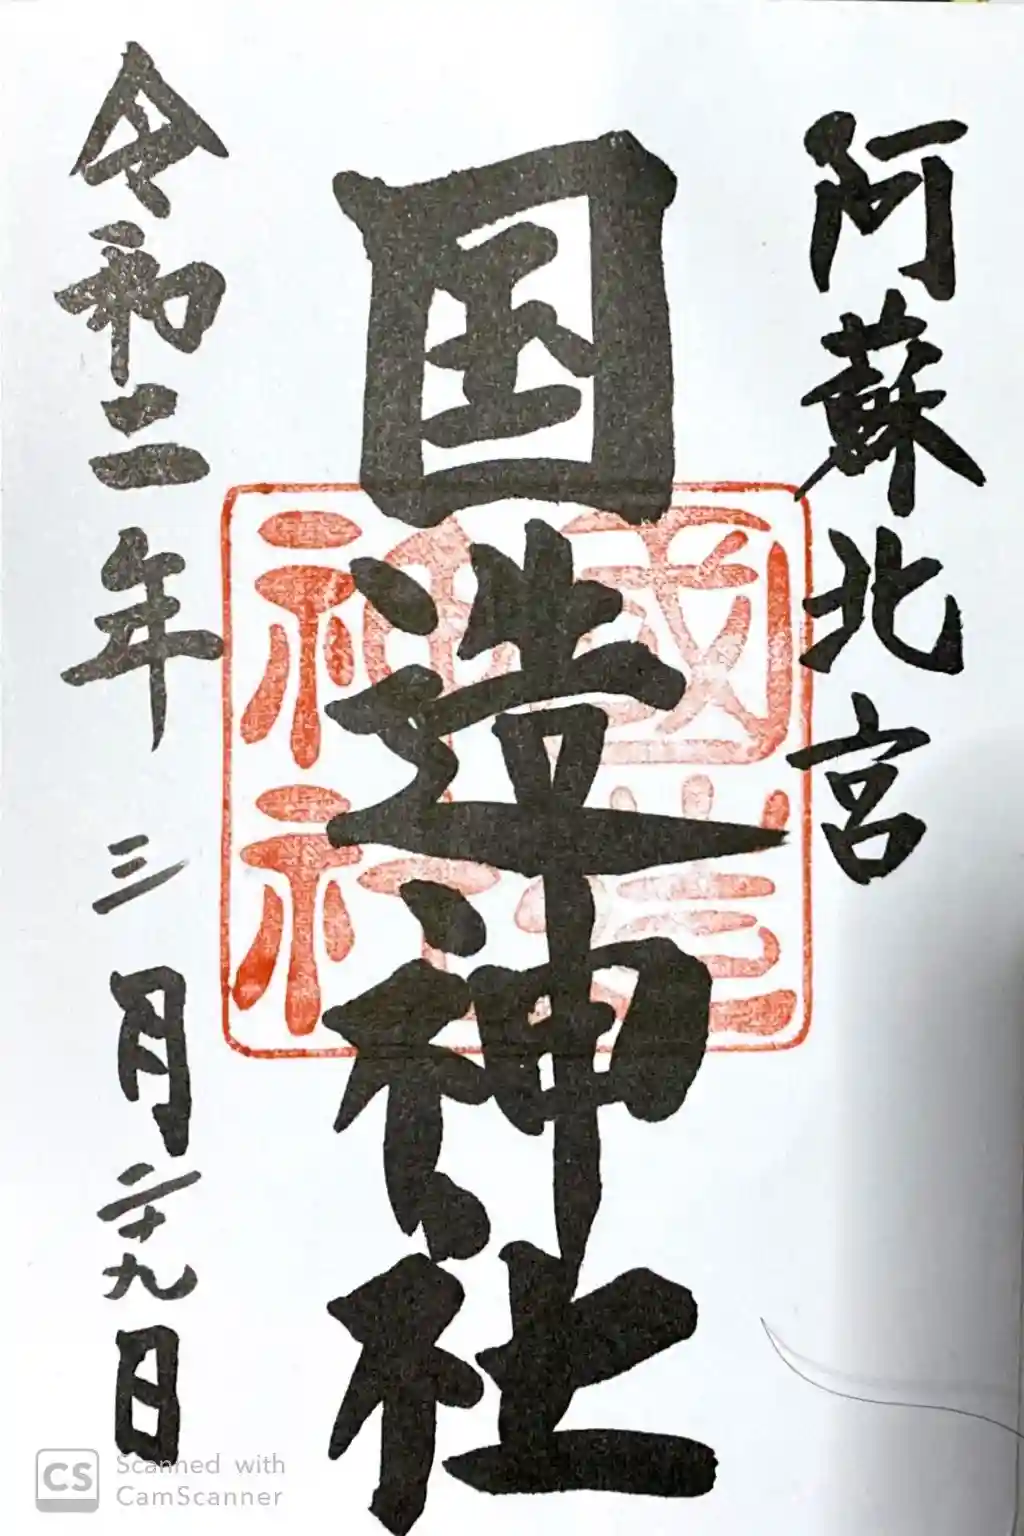 阿蘇北宮
国造神社
國造
神社
令和二年 三月二十九日
CS Scanned with
CamScanner